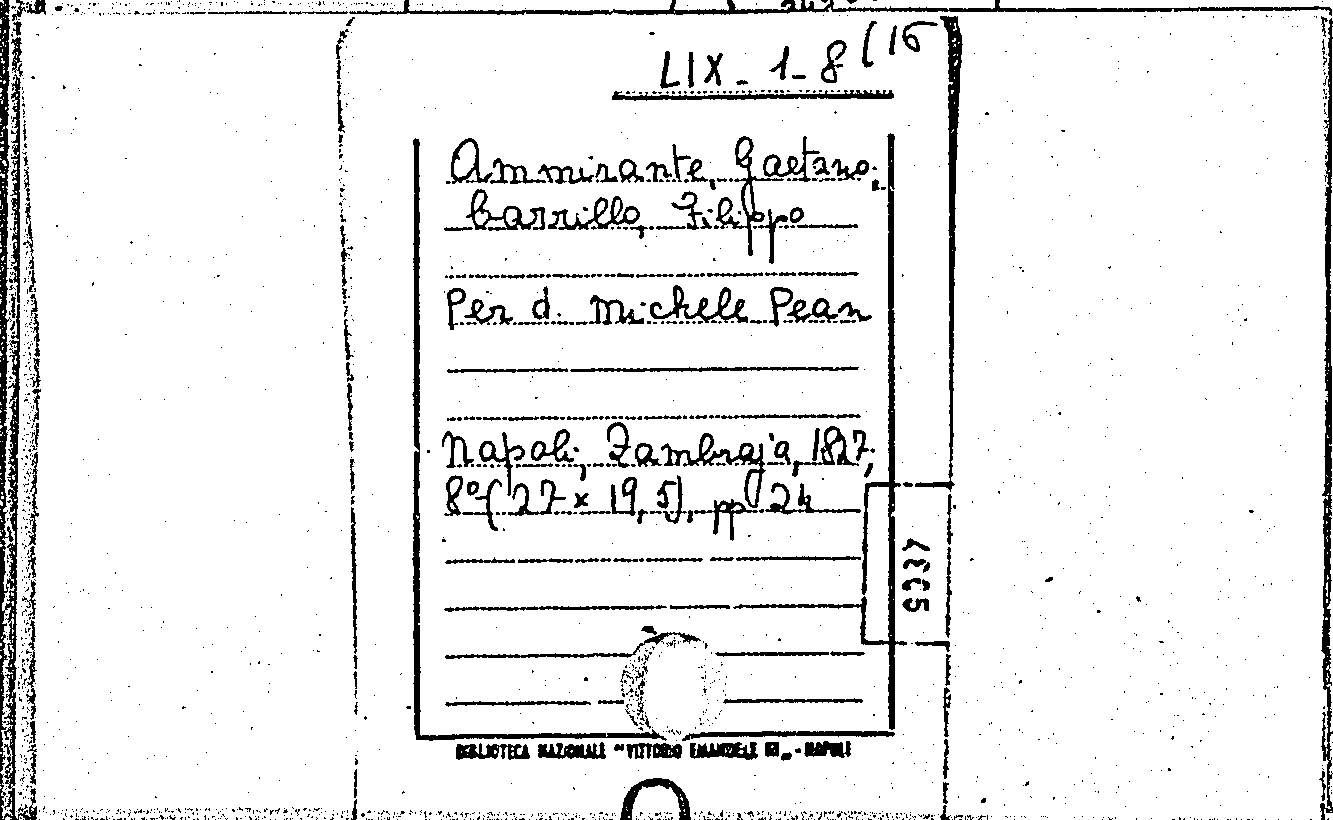 LIX - 1 - 8 (16
Ammirante, Gaetano;
Carrillo, Filippo
Per d. Michele Pean
Napoli, Zambraja, 1827,
8° (27 x 19,5), pp 24
BIBLIOTECA NAZIONALE "VITTORIO EMANUELE III„ - NAPOLI